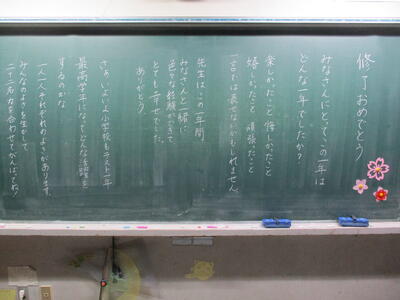 修了おめでとう
みなさんにとってこの一年は
どんな一年でしたか？
楽しかったこと 悔しかったこと
嬉しかったこと 頑張ったこと
一言では表せないかもしれません。
先生はこの一年間、
みなさんと一緒に
色々な経験ができて
とても幸せでした。
ありがとう。
さあ、いよいよ小学校もラスト一年
最高学年になってどんな活躍を
するのかな
一人一人それぞれのよさがあります。
みんなのよさを生かして
力を合わせてがんばってね！